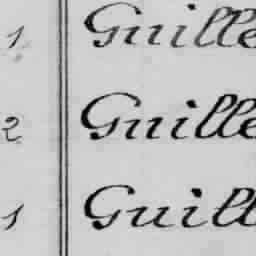 1 Guille
2 Guille
1 Guill